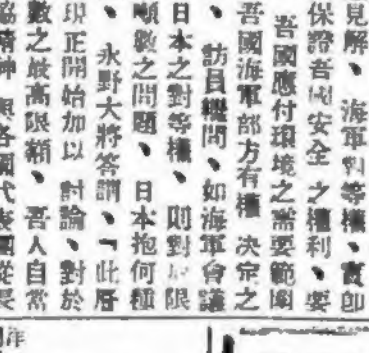 見解、海軍對等權、實即
保證吾國安全之權利、要
吾國應付環境之需要範圍
吾國海軍部方有權決定之
、訪員續問、如海軍會議
日本之對等權、則對於限
噸數之問題、日本抱何種
、永野大將答謂、「此層
現正開始加以討論、對於
數之最高限額、吾人自當
協精神與各國代表團從長
年